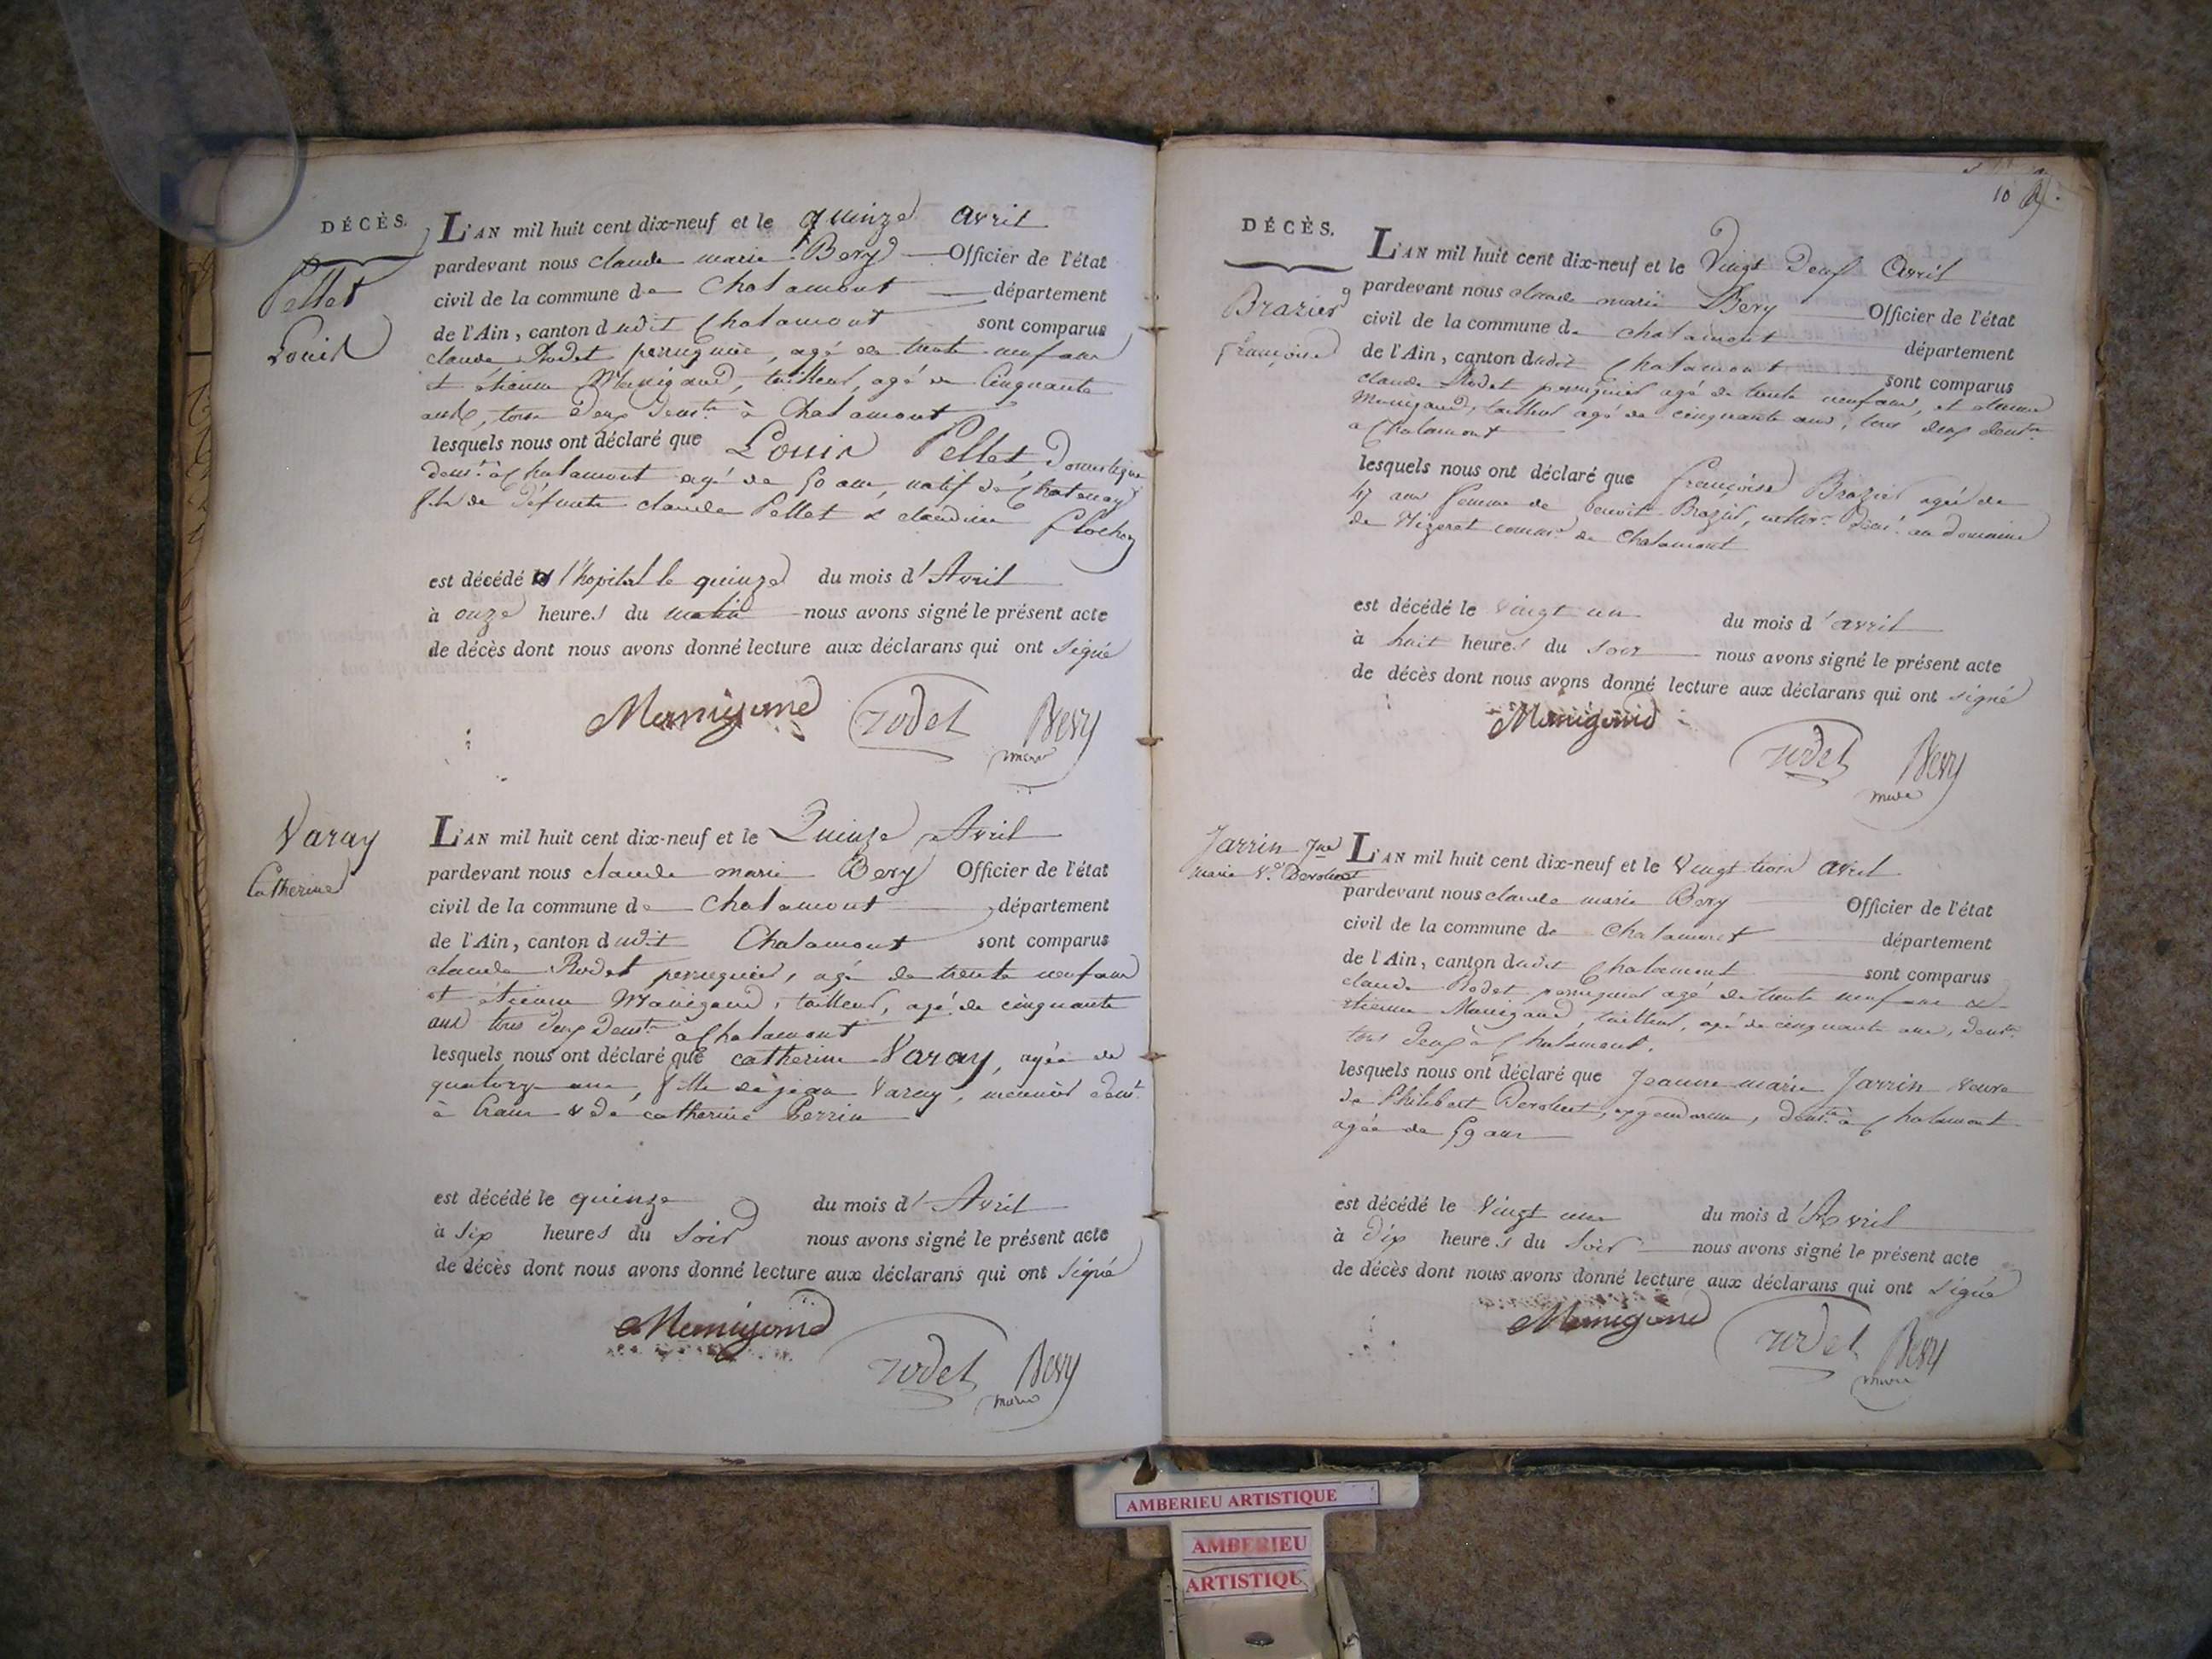 DÉCÈS.
Pellet
Louis
L'AN mil huit cent dix-neuf et le quinze avril
pardevant nous claude marie Bery Officier de l'état
civil de la commune de Chalamont département
de l'Ain, canton dudit Chalamont sont comparus
claude Rodet perruquier, agé de trente neuf ans
et étienne Manigand, tailleur, agé de Cinquante
ans, tous deux demts à Chalamont
lesquels nous ont déclaré que Louis Pellet, Domestique
demt à Chalamont agé de 50 ans, natif de Chatenay
fils de défunts claude Pellet & claudine
est décédé à l'hopital le quinze du mois d'Avril
à onze heures du matin nous avons signé le présent acte
de décès dont nous avons donné lecture aux déclarans qui ont signé
Manigand rodet Bery
maire
Varay
Catherine
L'AN mil huit cent dix-neuf et le Quinze Avril
pardevant nous claude marie Bery Officier de l'état
civil de la commune de Chalamont département
de l'Ain, canton dudit Chalamont sont comparus
claude Rodet perruquier, agé de trente neuf ans
et étienne Manigand, tailleur, agé de cinquante
ans tous deux demts à Chalamont
lesquels nous ont déclaré que catherine Varay, agée de
quatorze ans, fille de jean Varay, meunier demt
à Crans & de catherine Perrin
est décédé le quinze du mois d'Avril
à six heures du soir nous avons signé le présent acte
de décès dont nous avons donné lecture aux déclarans qui ont signé
Manigand rodet Bery
maire
10
DÉCÈS.
Brazier
françoise
L'AN mil huit cent dix-neuf et le Vingt deux Avril
pardevant nous claude marie Bery Officier de l'état
civil de la commune de chalamont département
de l'Ain, canton dudit Chalamont sont comparus
claude Rodet perruquier agé de trente neuf ans, et étienne
Manigand, tailleur agé de cinquante ans, tous deux demts
a Chalamont
lesquels nous ont déclaré que françoise Brazier agée de
47 ans femme de benoit Brazier, cultivr demt au domaine
de comme de Chalamont
est décédé le vingt un du mois d'avril
à huit heures du soir nous avons signé le présent acte
de décès dont nous avons donné lecture aux déclarans qui ont signé
Manigand
rodet Bery
maire
Jarrin Jne
marie Ve
L'AN mil huit cent dix-neuf et le Vingt trois avril
pardevant nous claude marie Bery Officier de l'état
civil de la commune de Chalamont département
de l'Ain, canton dudit Chalamont sont comparus
claude Rodet perruquier agé de trente neuf ans &
étienne Manigand, tailleur, agé de cinquante ans, demts
tous deux à Chalamont.
lesquels nous ont déclaré que Jeanne marie Jarrin veuve
de Philibert ex gendarme, demte à Chalamont
agée de 59 ans
est décédé le Vingt un du mois d'Avril
à dix heures du soir nous avons signé le présent acte
de décès dont nous avons donné lecture aux déclarans qui ont signé
Manigand rodet Bery
maire
AMBERIEU ARTISTIQUE
AMBERIEU
ARTISTIQU